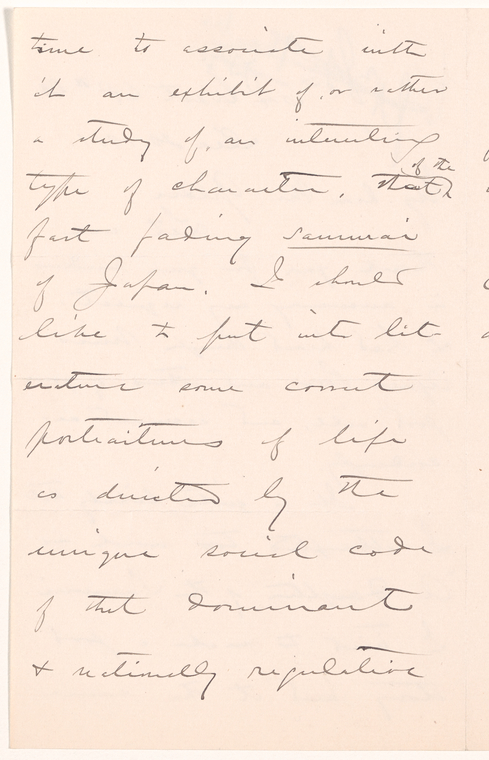 time to associate with
it an exhibit of, or rather
a study of, an interesting
of the
type of character, that
fast fading samurai
of Japan. I should
like to put into lit-
erature some correct
portraitures of life
as directed by the
unique social code
of that dominant
& nationally regulative